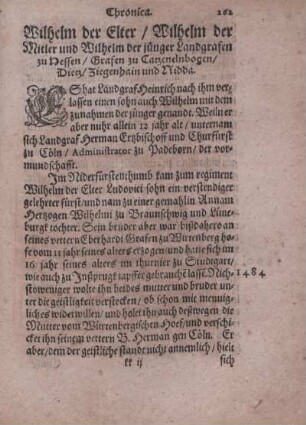 Chronica. 262
Wilhelm der Elter / Wilhelm der
Mitler und Wilhelm der jünger Landgrafen
zu Hessen / Grafen zu Catzenelnbogen /
Dietz / Ziegenhain und Nidda.
ES hat Landgraf Heinrich nach ihm ver-
lassen einen sohn auch Wilhelm mit dem
zunahmen der jünger genandt. Weil er
aber nuhr allein 12 jahr alt / unternam
sich Landgraf Herman Ertzbischoff und Churfürst
zu Cöln / Administrator zu Padeborn / der vor-
mundschafft.
Im Niderfürstenthumb kam zum regiment
Wilhelm der Elter Ludovici sohn ein verstendiger
gelehrter fürst / und nam zu einer gemahlin Annam
Hertzogen Wilhelmi zu Braunschwig und Lüne-
burgk tochter. Sein brüder aber war bißdahero an
seines vettern Eberhardi Grafen zu Würtenberg ho-
fe vom 11 jahr seines alters ertzogen und hatte sich im
16. jahr seines alters im thurnier zu Studtgart /
wie auch zu Inßprugk tapffer gebrauchē lassē. Nich- 1484
stoweniger wolte ihn beides mutter und bruder un-
ter die geistligkeit verstecken / ob schon mit mennig-
liches widerwillen / und holet ihn auch destwegen die
Mutter vom Würtenbergischen Hoef / und verschi-
cket ihn seinem vettern B. Herman gen Cöln. Er
aber / dem der geistliche standt nicht annemlich / hielt
kk ij sich